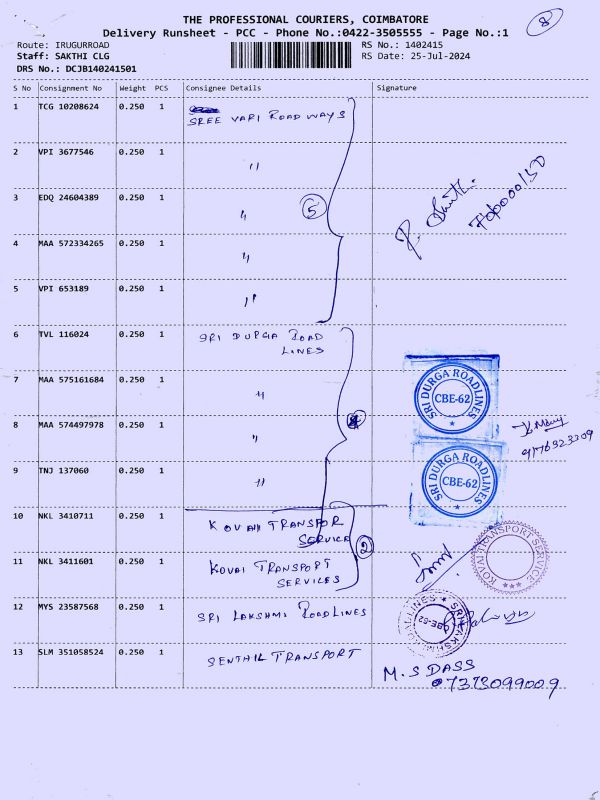 8
THE PROFESSIONAL COURIERS, COIMBATORE
Delivery Runsheet - PCC - Phone No.:0422-3505555 - Page No.:1
Route: IRUGURROAD
RS No.: 1402415
Staff: SAKTHI CLG
RS Date: 25-Jul-2024
DRS No.: DCJB140241501
S No Consignment No Weight PCS Consignee Details Signature
1 TCG 10208624 0.250 1 SREE VARI ROADWAYS
2 VPI 3677546 0.250 1 "
3 EDQ 24604389 0.250 1 "
5
4 MAA 572334265 0.250 1 "
5 VPI 653189 0.250 1 "
6 TVL 116024 0.250 1 SRI DURGA ROAD
LINES
7 MAA 575161684 0.250 1 "
SRI DURGA ROADLINES
CBE-62
8 MAA 574497978 0.250 1 "
4
9 TNJ 137060 0.250 1 "
SRI DURGA ROADLINES
CBE-62
10 NKL 3410711 0.250 1 KOVAI TRANSPOR
SERVICE
2
KOVAI TRANSPORT SERVICE
11 NKL 3411601 0.250 1 KOVAI TRANSPORT
SERVICES
12 MYS 23587568 0.250 1 SRI LAKSHMI ROADLINES
CBE-62
13 SLM 351058524 0.250 1 SENTHIL TRANSPORT
M.S DASS
7373099009